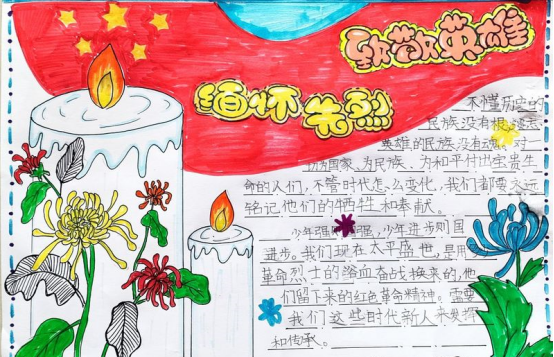 致敬英雄
缅怀先烈
不懂历史的
民族没有根,淡忘
英雄的民族没有魂。对一
为国家、为民族、为和平付出宝贵生
命的人们,不管时代怎么变化,我们都要永远
铭记他们的牺牲和奉献。
少年强则国强,少年进步则国
进步。我们现在太平盛世,是用
革命烈士的浴血奋战换来的,他
们留下来的红色革命精神。需要
我们这些时代新人来发扬
和传承。